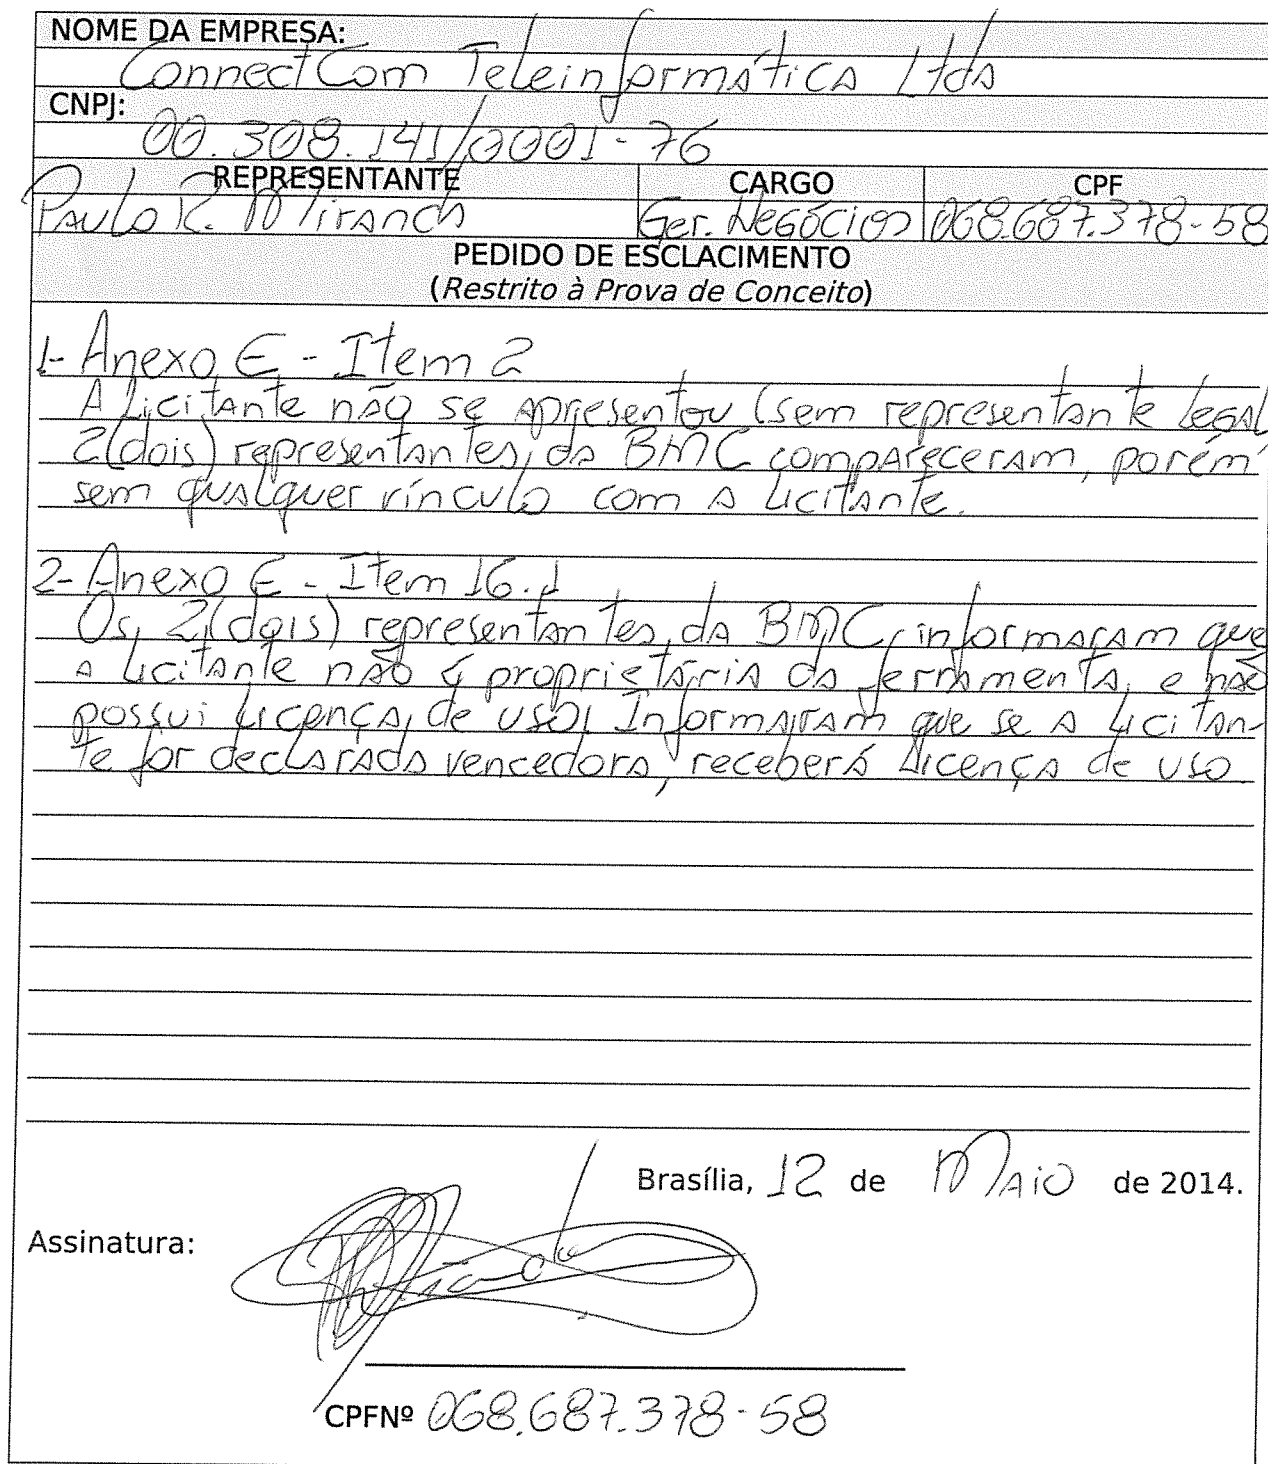 NOME DA EMPRESA:
ConnectCom Teleinformática Ltda
CNPJ:
00.308.141/0001-76
REPRESENTANTE CARGO CPF
Paulo R. Miranda Ger. Negócios 068.687.378-58
PEDIDO DE ESCLACIMENTO
(Restrito à Prova de Conceito)
1- Anexo E - Item 2
A Licitante não se apresentou (sem representante legal
2(dois) representantes da BMC compareceram, porém
sem qualquer vínculo com a licitante.
2- Anexo E - Item 16.1
Os 2(dois) representantes da BMC informaram que
a licitante não é proprietária da ferramenta, e não
possui licença de uso. Informaram que se a licitan-
te for declarada vencedora, receberá licença de uso
Brasília, 12 de Maio de 2014.
Assinatura:
CPFNº 068.687.378-58